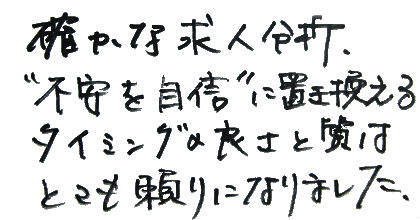 確かな求人分析、
“不安を自信”に置き換える
タイミングの良さと質は
とても頼りになりました。